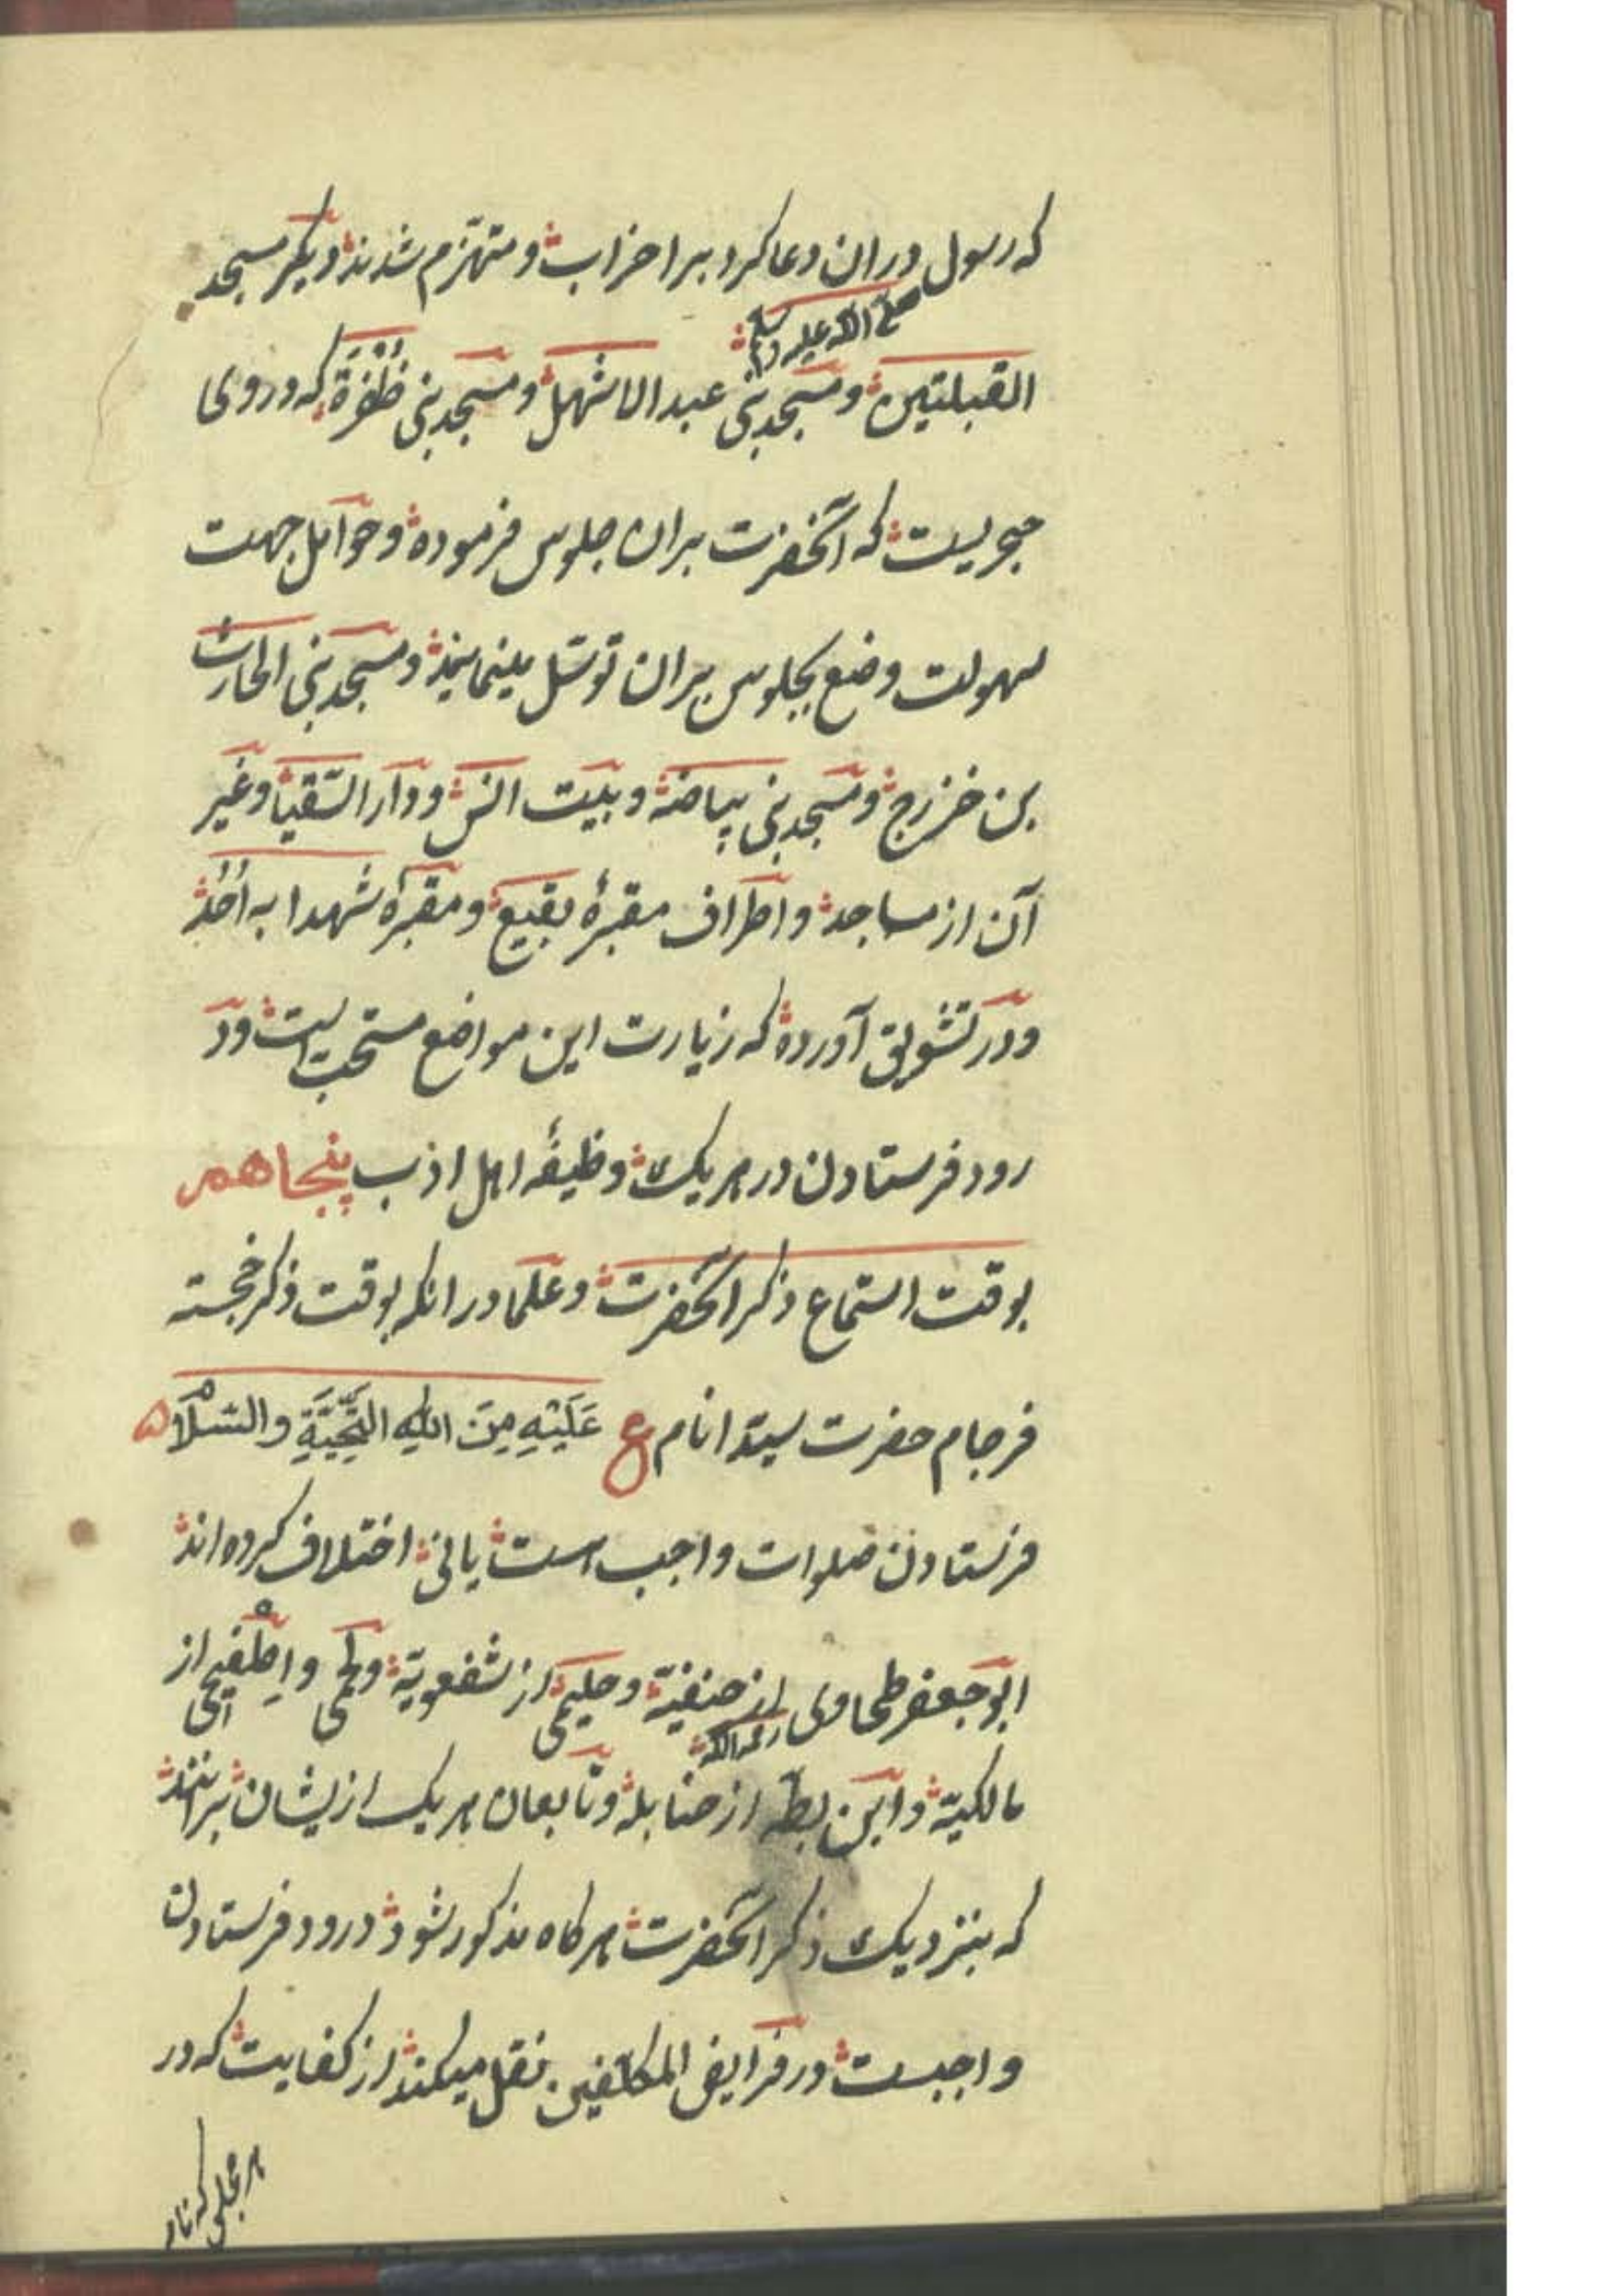 که رسول دران دعا کرد بر احزاب و متهزم شدند و یکر مسجد
صلی الله علیه وسلم
القبلتین و مسجد بنی عبد الاشهل و مسجد بنی ظُفْرَة که در وی
حجریست که آنحضرت بران جلوس فرموده و حوامل جهت
سهولت وضع بجلوس بران توسّل مینمایند و مسجد بنی الحارث
بن خزرج و مسجد بنی بیاضه و بیت انس و دار السّقیا و غیر
آن از مساجد و اطراف مقبرۀ بقیع و مقبرۀ شهدا به اُحُد
و در تشویق آورده که زیارت این مواضع مستحب است و د
رود فرستادن در هر یک وظیفۀ اهل ادب پنجاهم
بوقت استماع ذکر آنحضرت و علما در انکه بوقت ذکر خجسته
فرجام حضرت سیّد انام ع عَلَیْهِ مِنَ اللهِ التَّحِیَّةِ والسَّلَامْ
فرستادن صلوات واجب است یا نی اختلاف کرده اند
ابو جعفر طحاوی از حنفیّه و حلیمی از شفعویّه و لخمی و اِطْفیحی از
رحمه الله
مالکیّه و ابن بطّه از حنابله و تابعان هر یک از یشان برانند
که بنزدیک ذکر آنحضرت هر کاه مذکور شود درود فرستادن
واجبست در فرایض المکلّفین نقل میکند از کفایت که در
هر مجلسی که نام